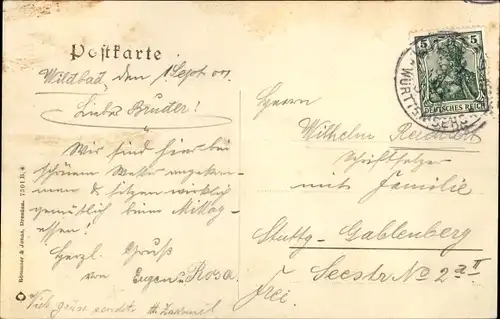 Postkarte
Wildbad, den 1 Sept
Lieber Bruder!
Wir sind hier bei
schönem Wetter angekom-
men & sitzen wirklich
gemütlich beim Mittag-
essen!
Herzl. Gruß
von Eugen u. Rosa
Viele Grüße sendet
Römmler & Jonas, Dresden. 7201 B.
5 5
DEUTSCHES REICH
Herrn
Wilhelm
Schriftsetzer
mit Familie
Stuttg-Gablenberg
Seestr No 2a II
frei.